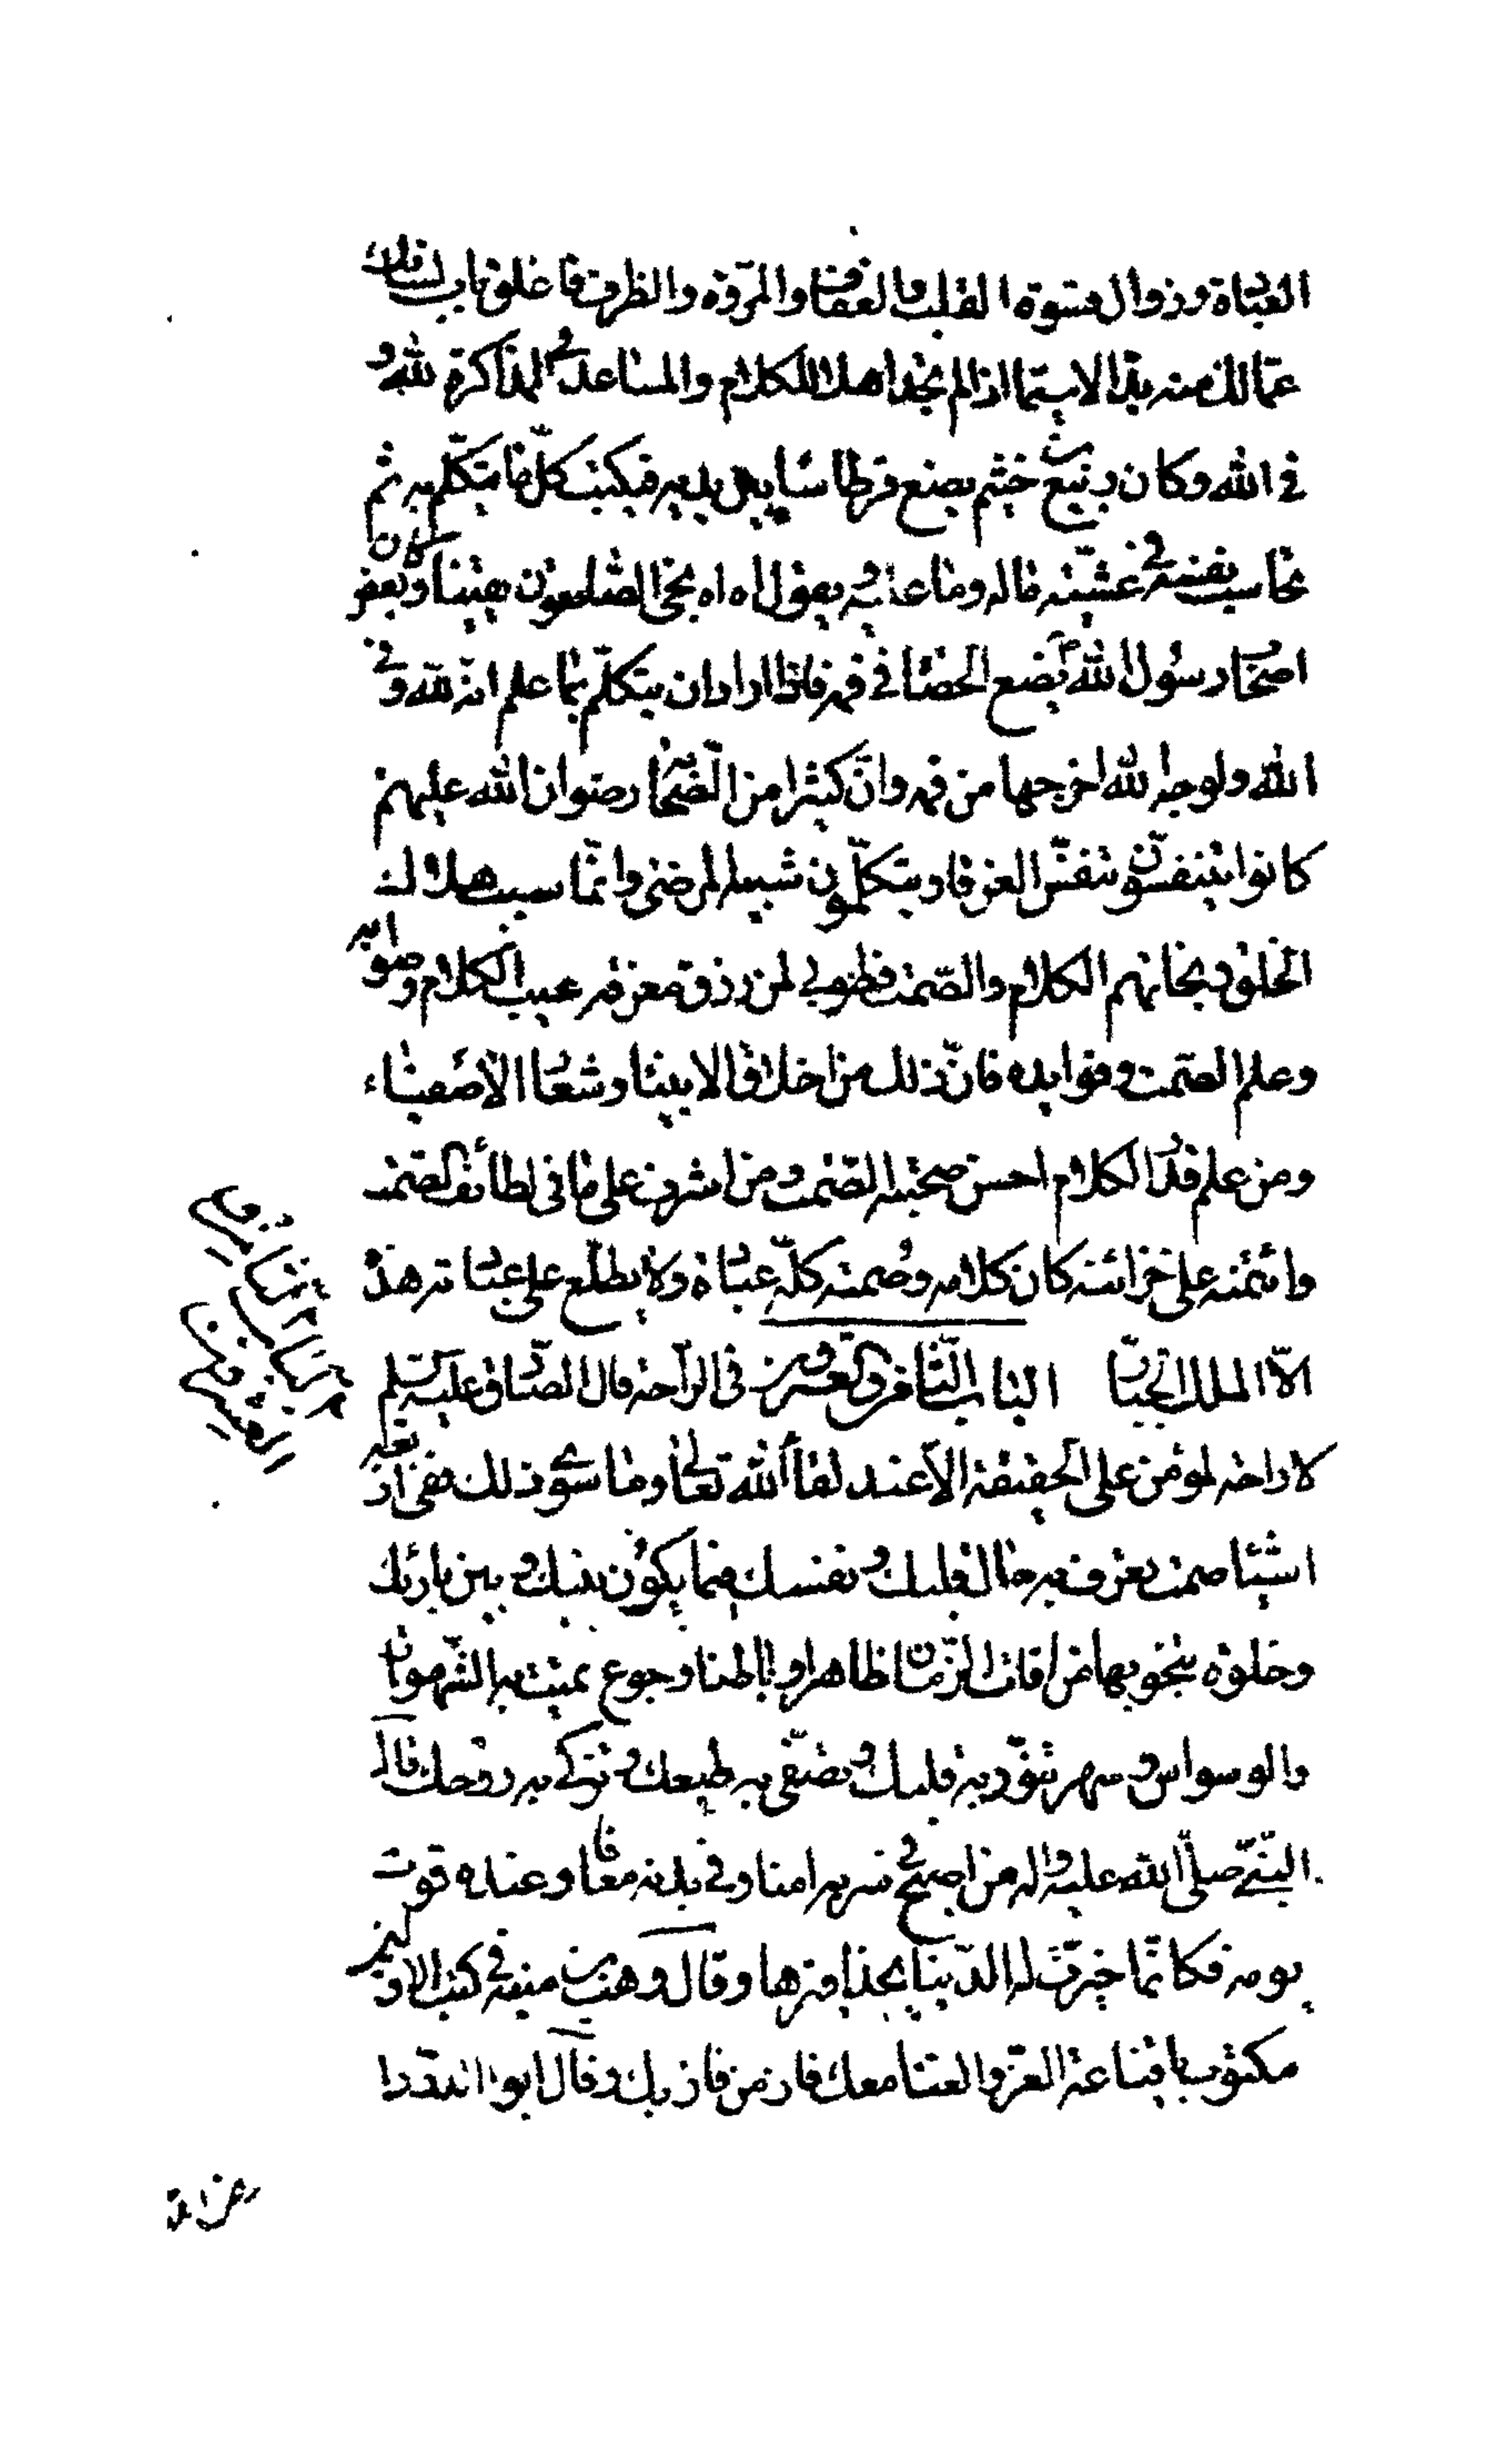 العبادة وزوال قسوة القلب والعفاف والمروّة والظرف فاغلق باب لسانك
عمّا لك منه بدّ لا سيّما اذا لم تجد اهلا للكلام والمساعد فى المذاكرة لله و
فى الله وكان ربيع بن خثيم يضع قرطاسا بين يديه فيكتب كلّ ما يتكلّم به ثم
يحاسب نفسه فى عشيّته ماله وما عليه ويقول اه اه نجى الصّامتون وبقينا وكان بعض
اصحاب رسول الله يضع الحصاة فى فمه فاذا اراد ان يتكلّم بما علم انه لله وفى
الله ولوجه الله اخرجها من فمه وانّ كثيرا من الصّحابة رضوان الله عليهم
كانوا يتنفسّون تنفسّ الغرقا ويتكلّمون شبيه المرضى وانّما سبب هلاك
الخلق ونجاتهم الكلام والصّمت فطوبى لمن رزق معرفة عيب الكلام وصوابه
وعلم الصّمت وفوايده فانّ ذلك من اخلاق الانبياء وشعار الاصفياء
ومن علم قدر الكلام احسن صحبة الصّمت ومن اشرف على ما فى لطائف الصّمت
وائتمنه على خزائنه كان كلامه وصمته كلّه عبادة ولا يطلّع على عبادته هذه
الاّ الملك الجبّار الباب الثّامن والعشرون فى الرّاحة قال الصّادق عليه السّلم
لا راحة لمؤمن على الحقيقة الاّ عند لقاء الله تعالى وما سوى ذلك ففى اربعة
اشياء صمت تعرف به حال قلبك ونفسك فيما يكون بينك وبين بارئك
وخلوة تنجو بها من افات الزّمان ظاهرا وباطنا وجوع تميت به الشّهوات
والوسواس وسهر تنوّر به قلبك وتصفّى به طبعك وتزكى به روحك قال
النبىّ صلّى الله عليه واله من اصبح فى سربه امنا وفى بدنه معافا وعنده قوت
يومه فكانّما خيرت له الدّنيا بحذافيرها وقال وهب بن منبه فى كتب الاولين والاخرين
مكتوب يا قناعة العزّ والغنا معك فاز من فاز بك وقال ابو الدّردا